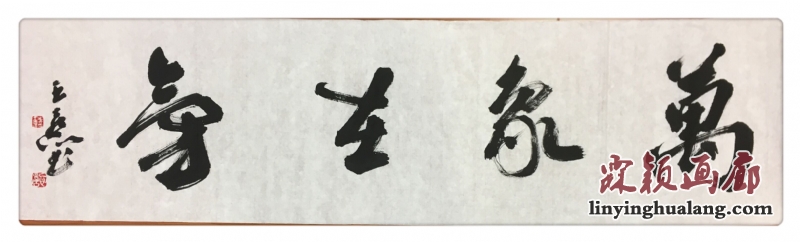 萬象在旁
霖颖画廊
linyinghualang.com